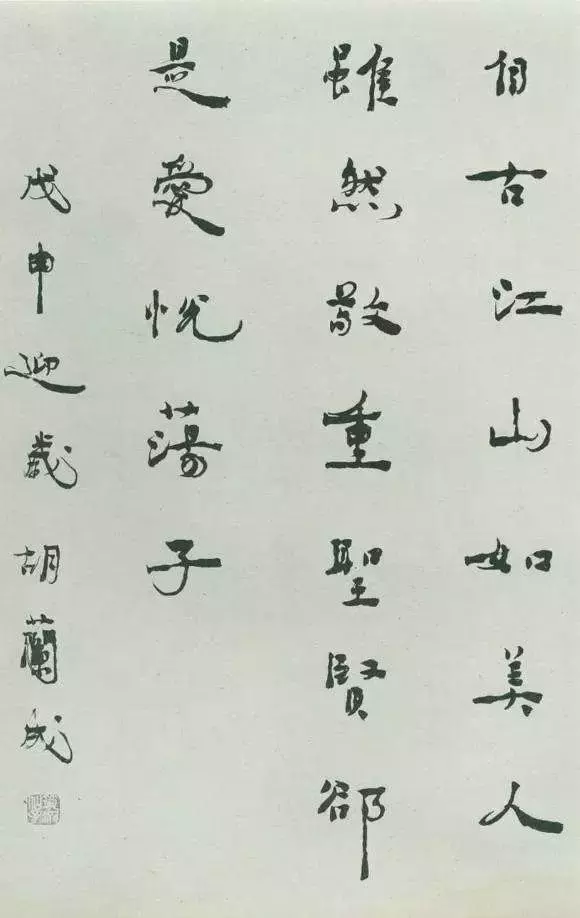 自古江山如美人
雖然敬重聖賢卻
是愛悅蕩子
戊申迎歲 胡蘭成